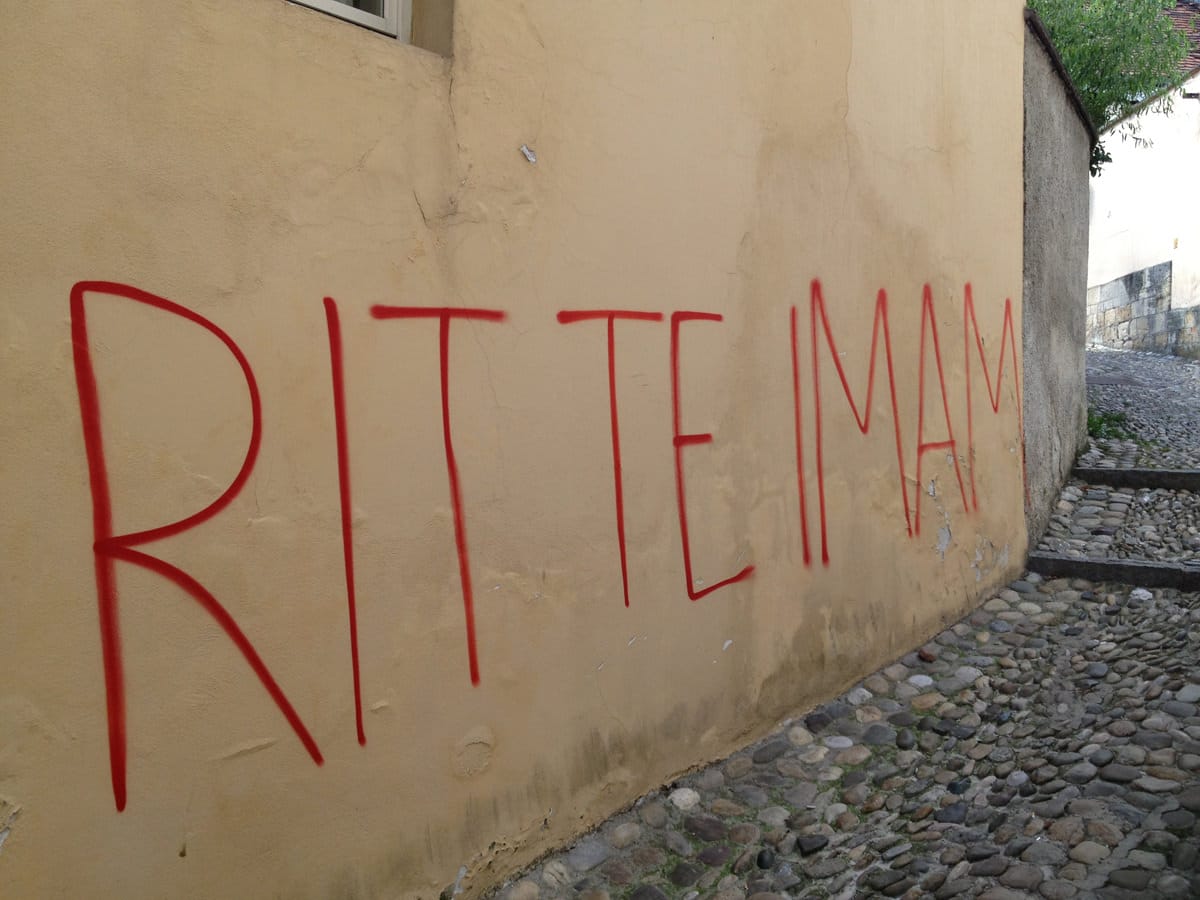 RIT TE IMAM